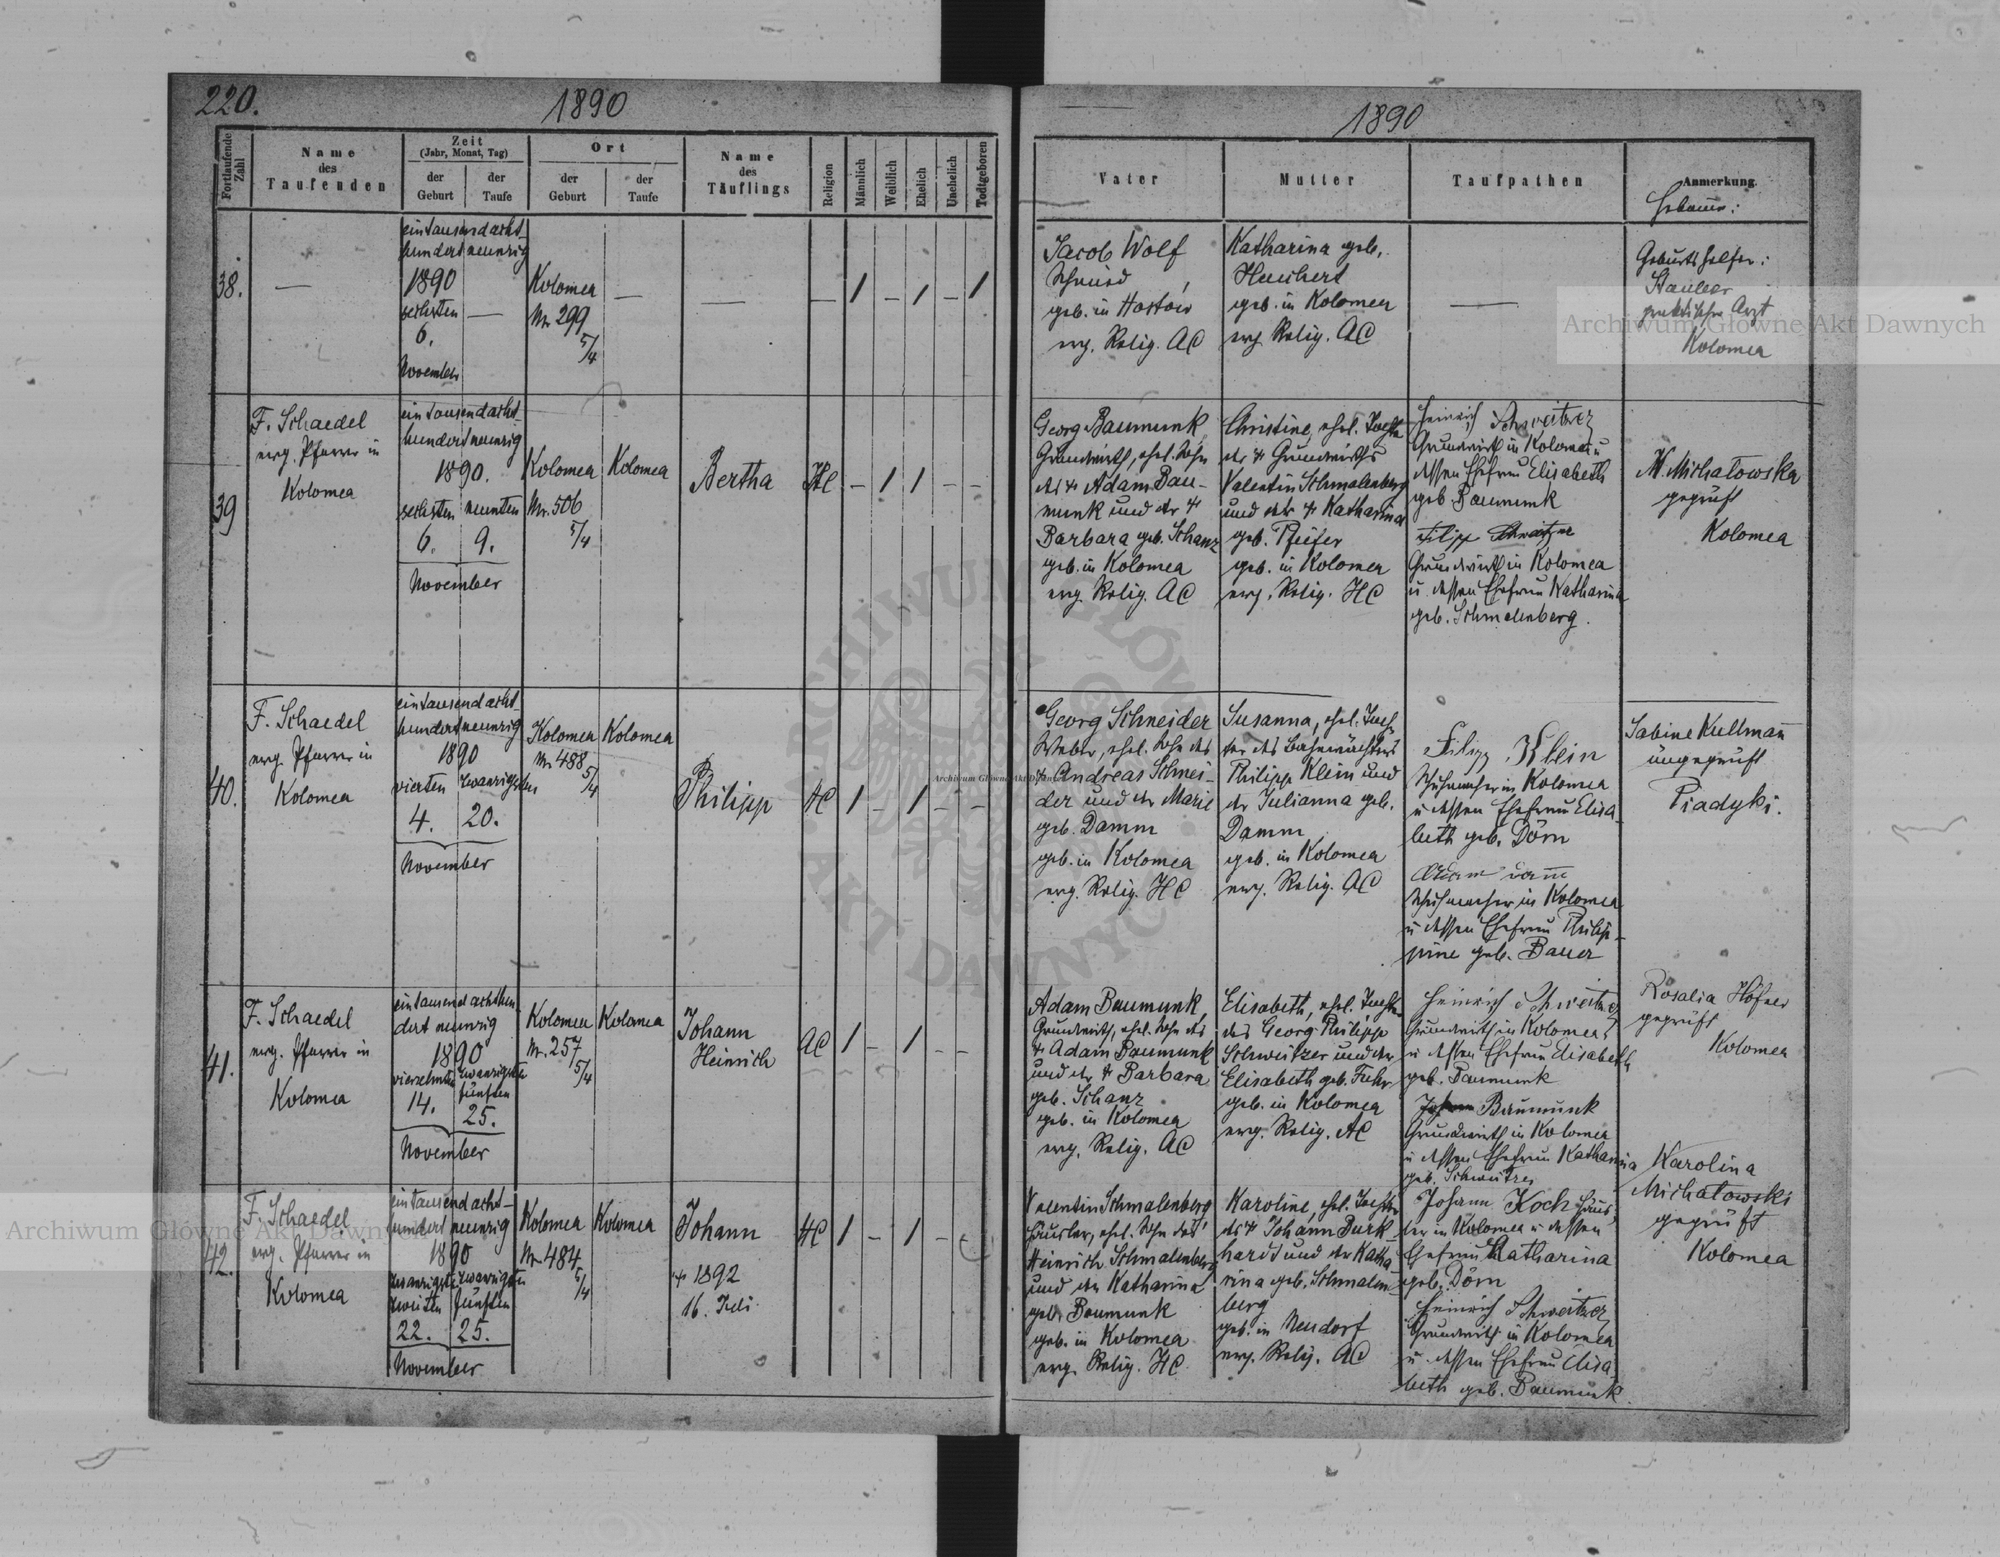 220.
1890
1890
Fortlaufende Zahl
Name
des
Taufenden
Zeit
(Jahr, Monat, Tag)
der
Geburt
der
Taufe
Ort
der
Geburt
der
Taufe
Name
des
Täuflings
Religion
Männlich
Weiblich
Ehelich
Unehelich
Todtgeboren
Vater
Mutter
Taufpathen
Anmerkung
Hebamme:
38.
—
eintausendacht-
hundertneunzig
1890
sechsten
6.
November
—
Kolomea
Nr. 299
5/4
—
—
—
/
–
/
–
/
Jacob Wolf
Schmied,
geb. in
evg. Relig. AC
Katharina geb.
geb. in Kolomea
evg. Relig. AC
—
Geburtshelfer:
praktischer Arzt
Kolomea
39
F. Schaedel
evg. Pfarrer in
Kolomea
eintausendacht-
hundertneunzig
1890.
sechsten neunten
6. 9.
November
Kolomea
Nr. 506
5/4
Kolomea
Bertha
HC
–
/
/
–
–
Georg Baumunk
Grundwirth, ehel. Sohn
des + Adam Bau-
munk und der +
Barbara geb. Schanz
geb. in Kolomea
evg. Relig. AC
Christine, ehel. Tochter
des + Grundwirths
Valentin Schmalenberg
und der + Katharina
geb. Pfeifer
geb. in Kolomea
evg. Relig. HC
Heinrich Schweitzer
Grundwirth in Kolomea u
dessen Ehefrau Elisabeth
geb Baumunk
Filipp
Grundwirth in Kolomea
u. dessen Ehefrau Katharina
geb. Schmalenberg.
M. Michałowska
geprüft
Kolomea
40.
F. Schaedel
evg. Pfarrer in
Kolomea
eintausendacht-
hundertneunzig
1890
vierten zwanzigsten
4. 20.
November
Kolomea
Nr. 488
5/4
Kolomea
Philipp
HC
/
–
/
–
–
Georg Schneider
Weber, ehel. Sohn des
+ Andreas Schnei-
der und der Marie
geb. Damm
geb. in Kolomea
evg. Relig. HC
Susanna, ehel. Toch-
ter des Bahnwächters
Philipp Klein und
der Julianna geb.
Damm
geb. in Kolomea
evg. Relig. AC
Filipp Klein
Schuhmacher in Kolomea
u dessen Ehefrau Elisa-
beth geb. Dörn
Adam Damm
Schuhmacher in Kolomea
u dessen Ehefrau Philip-
pine geb. Bauer
Sabine Kullmann
ungeprüft
Piadyki.
41.
F. Schaedel
evg. Pfarrer in
Kolomea
eintausend achthun-
dert neunzig
1890
vierzehnten zwanzigsten
fünften
14. 25.
November
Kolomea
Nr. 257
5/4
Kolomea
Johann
Heinrich
AC
/
–
/
–
–
Adam Baumunk,
Grundwirth, ehel. Sohn des
+ Adam Baumunk
und der + Barbara
geb. Schanz
geb. in Kolomea
evg. Relig. AC
Elisabeth, ehel. Tochter
des Georg Philipp
Schweitzer und der
Elisabeth geb. Fuhr
geb. in Kolomea
evg. Relig. AC
Heinrich Schweitzer
Grundwirth in Kolomea
u dessen Ehefrau Elisabeth
geb. Baumunk
Johann Baumunk
Grundwirth in Kolomea
u dessen Ehefrau Katharina
geb. Schweitzer
Rosalia Höfner
geprüft
Kolomea
42.
F. Schaedel
evg. Pfarrer in
Kolomea
eintausend acht-
hundert neunzig
1890
zwanzigsten
zweiten fünften
22. 25.
November
Kolomea
Nr. 484
5/4
Kolomea
Johann
+ 1892
16. Juli
HC
/
–
/
–
Valentin Schmalenberg
Häusler, ehel. Sohn des
Heinrich Schmalenberg
und der Katharina
geb. Baumunk
geb. in Kolomea
evg. Relig. HC
Karoline, ehel. Tochter
des + Johann Burk-
hardt und der Katha
rina geb. Schmalen-
berg
geb. in Neudorf
evg. Relig. AC
Johann Koch Häus-
ler in Kolomea u dessen
Ehefrau Katharina
geb. Dörn
Heinrich Schweitzer
Grundwirth in Kolomea
u. dessen Ehefrau Elisa-
beth geb. Baumunk.
Karolina
Michałowski
geprüft
Kolomea
Archiwum Główne Akt Dawnych
Archiwum Główne Akt Dawnych
Archiwum Główne Akt Dawnych
ARCHIWUM GŁÓWNE AKT DAWNYCH